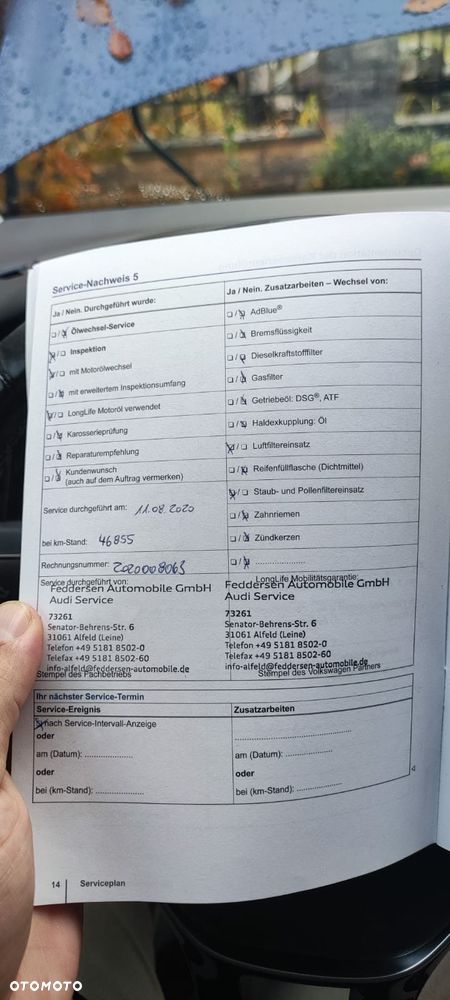 Service-Nachweis 5
Ja / Nein. Durchgeführt wurde:
Ja / Nein. Zusatzarbeiten – Wechsel von:
Ölwechsel-Service
AdBlue®
Inspektion
Bremsflüssigkeit
mit Motorölwechsel
Dieselkraftstofffilter
mit erweitertem Inspektionsumfang
Gasfilter
LongLife Motoröl verwendet
Getriebeöl: DSG®, ATF
Karosserieprüfung
Haldexkupplung: Öl
Reparaturempfehlung
Luftfiltereinsatz
Kundenwunsch
(auch auf dem Auftrag vermerken)
Reifenfüllflasche (Dichtmittel)
Staub- und Pollenfiltereinsatz
Service durchgeführt am: 11.08.2020
Zahnriemen
bei km-Stand: 46855
Zündkerzen
Rechnungsnummer: 2020008063
....................
Service durchgeführt von:
LongLife Mobilitätsgarantie:
Feddersen Automobile GmbH
Audi Service
73261
Senator-Behrens-Str. 6
31061 Alfeld (Leine)
Telefon +49 5181 8502-0
Telefax +49 5181 8502-60
info-alfeld@feddersen-automobile.de
Stempel des Fachbetriebs
Feddersen Automobile GmbH
Audi Service
73261
Senator-Behrens-Str. 6
31061 Alfeld (Leine)
Telefon +49 5181 8502-0
Telefax +49 5181 8502-60
info-alfeld@feddersen-automobile.de
Stempel des Volkswagen Partners
Ihr nächster Service-Termin
Service-Ereignis
Zusatzarbeiten
nach Service-Intervall-Anzeige
oder
am (Datum): ....................
am (Datum): ....................
oder
oder
bei (km-Stand): ....................
bei (km-Stand): ....................
14 Serviceplan
OTOMOTO